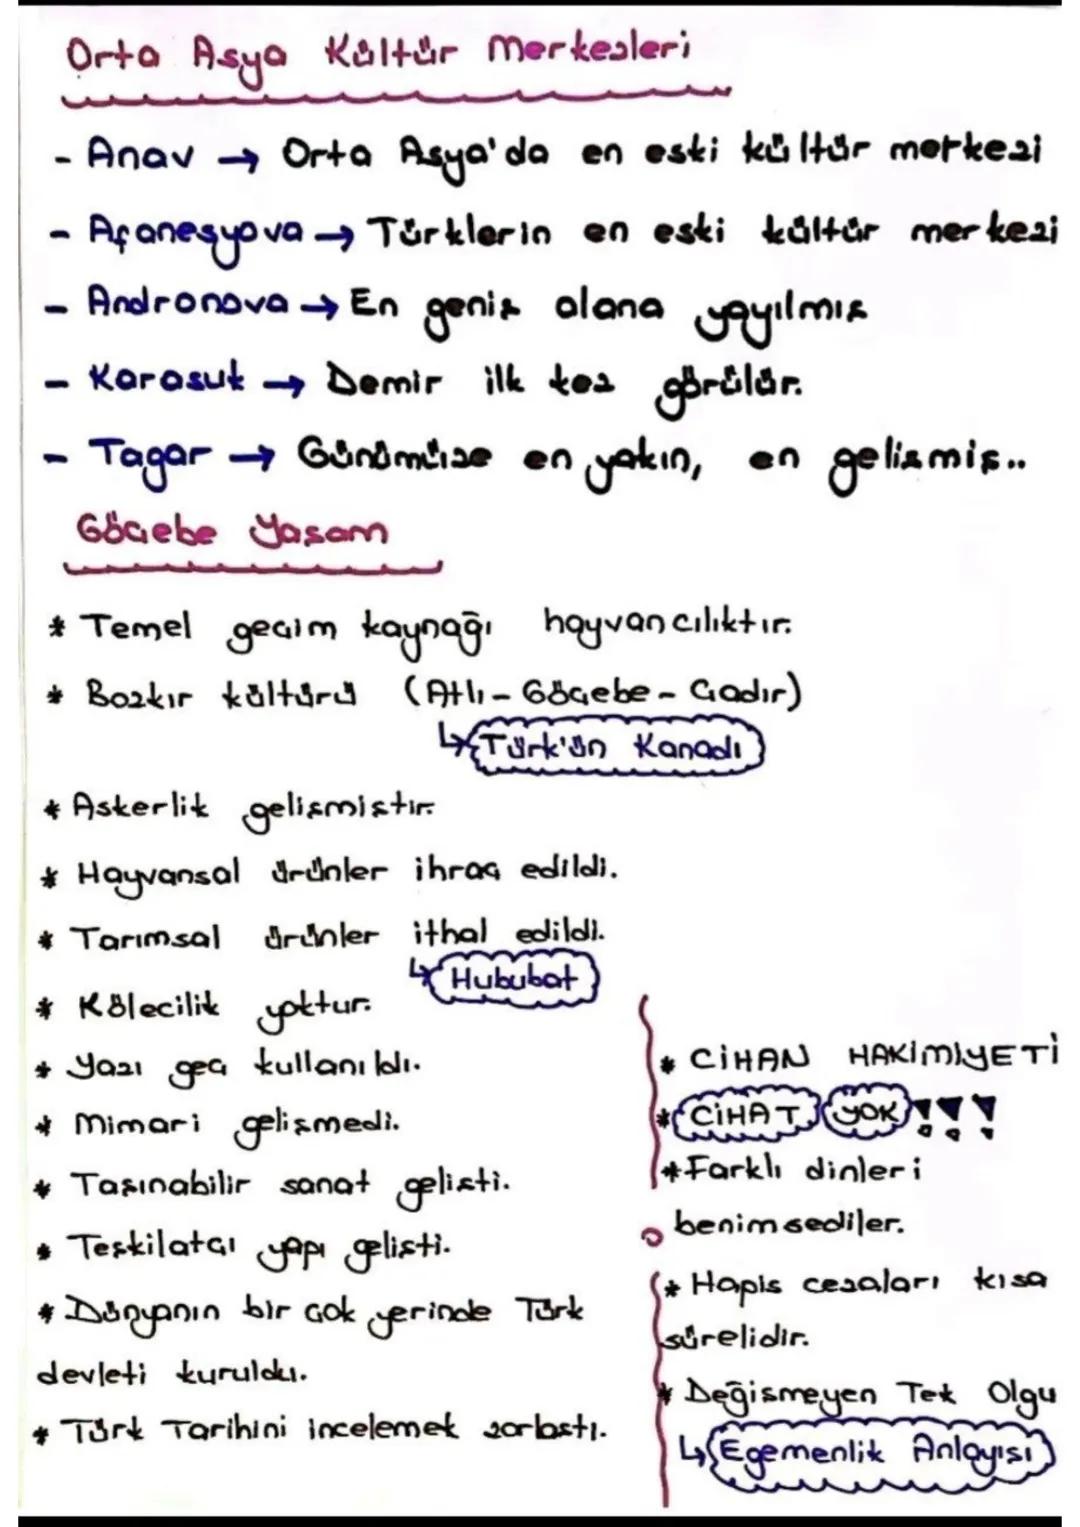 Orta Asya Kültür Merkezleri
- Anav → Orta Asya'da en eski kültür merkezi
- Afanesyova → Türklerin en eski kültür merkezi
- Andronova → En geniş alana yayılmış
- Karasuk → Demir ilk kez görülür.
- Tagar → Günümüze en yakın, en gelişmiş..
Göçebe Yaşam
* Temel geçim kaynağı hayvancılıktır.
* Bozkır kültürü (Atlı - Göçebe - Çadır)
↳ Türk'ün Kanadı
* Askerlik gelişmiştir.
* Hayvansal ürünler ihraç edildi.
* Tarımsal ürünler ithal edildi.
↳ Hububat
* Kölecilik yoktur.
* Yazı geç kullanıldı.
* Mimari gelişmedi.
* Taşınabilir sanat gelişti.
* Teşkilatçı yapı gelişti.
* Dünyanın bir çok yerinde Türk
devleti kuruldu.
* Türk Tarihini incelemek zorlaştı.
* CİHAN HAKİMİYETİ
* CİHAT YOK !!!
* Farklı dinleri
benimsediler.
* Hapis cezaları kısa
sürelidir.
* Değişmeyen Tek Olgu
↳ Egemenlik Anlayışı